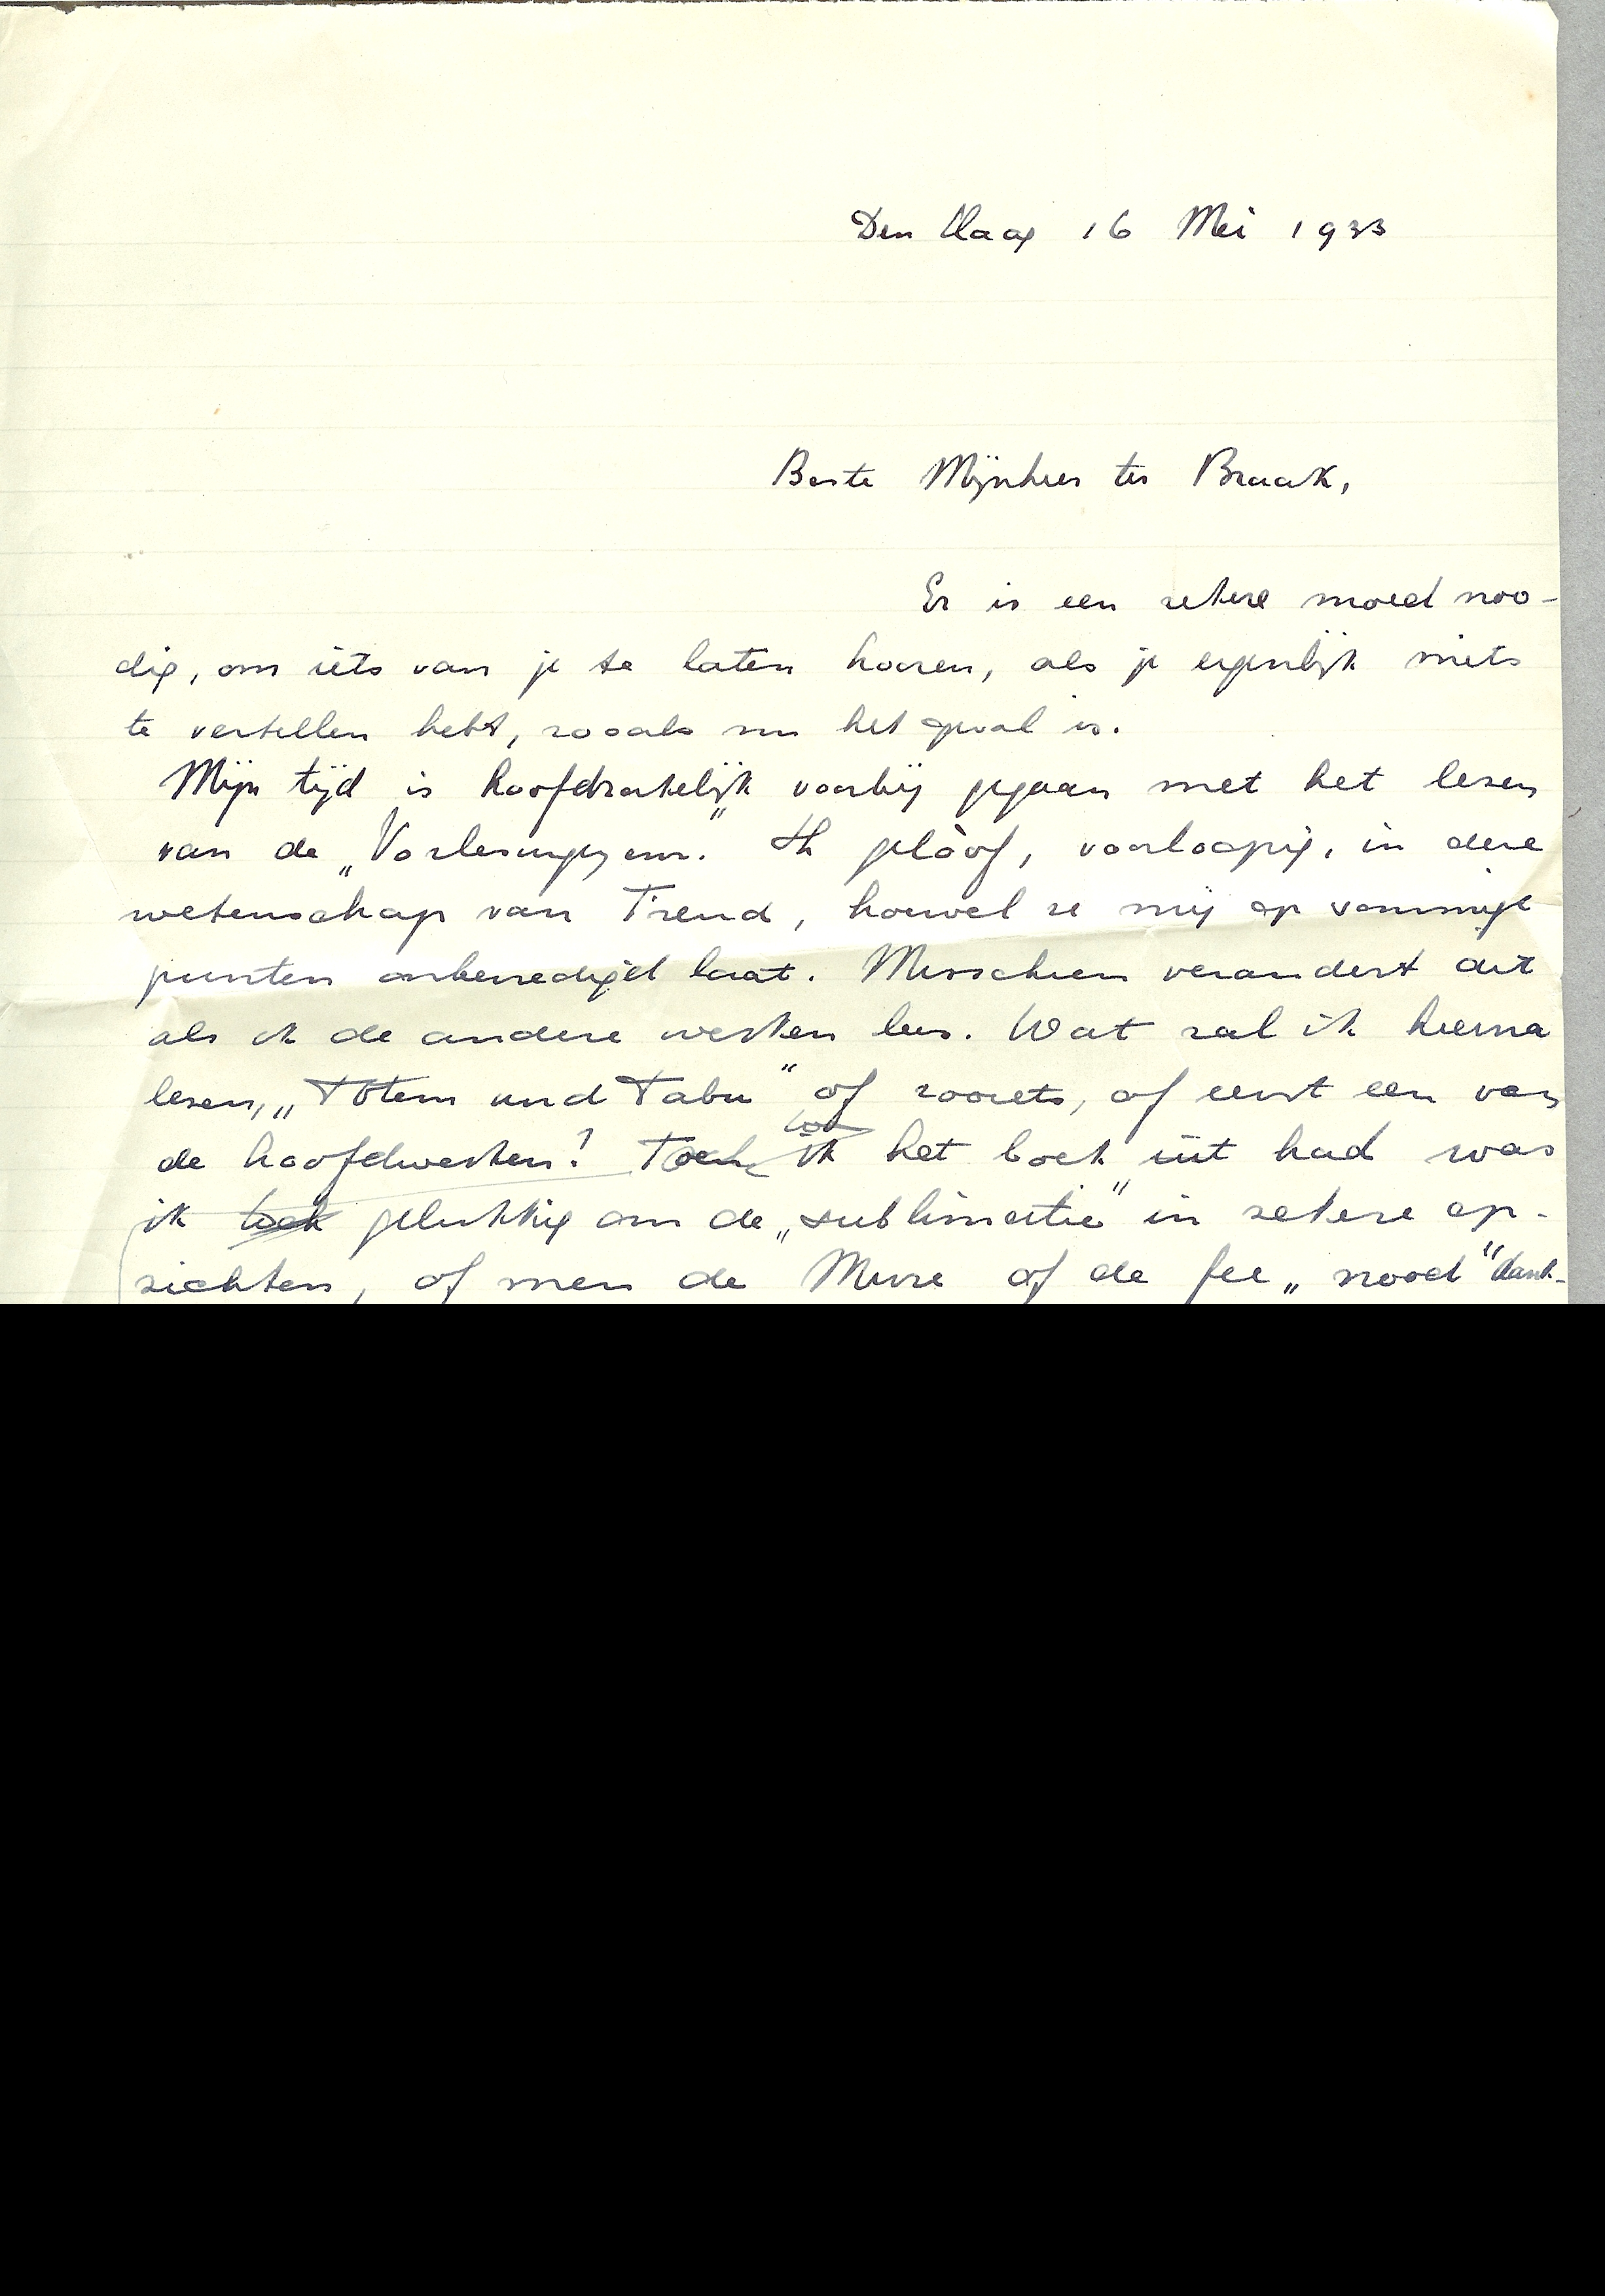 Den Haag 16 Mei 1933
Beste Mijnheer ter Braak,
Er is een zekere moed noo-
dig, om iets van je te laten hooren, als je eigenlijk niets
te vertellen hebt, zooals nu het geval is.
Mijn tijd is hoofdzakelijk voorbij gegaan met het lezen
van de „Vorlesungen". Ik gelóóf, voorloopig, in deze
wetenschap van Freud, hoewel ze mij op sommige
punten onbevredigd laat. Misschien verandert dit
als ik de andere werken lees. Wat zal ik hierna
lezen, „Totem und Tabu" of zooiets, of eerst een van
de hoofdwerken? Toen ik het boek uit had was
ik toch gelukkig om de „sublimatie" in zekere op-
zichten, of men de Muze of de fee „nood" dank-